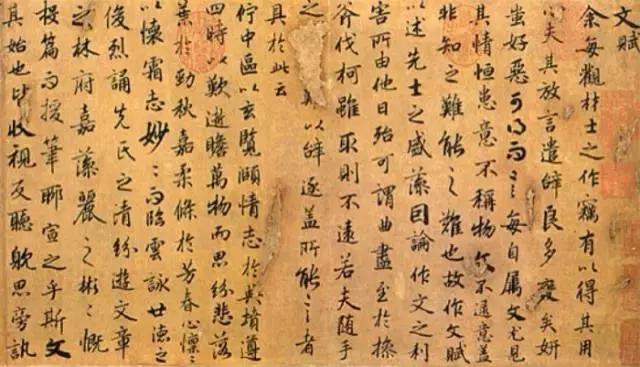 文賦
余每觀材士之作竊有以得其用
心夫其放言遣辞良多變矣妍
蚩好惡可得而言每自属文尤見
其情恒患意不稱物文不逮意盖
非知之難能之難也故作文賦
以述先士之盛藻因論作文之利
害所由他日殆可謂曲盡至於操
斧伐柯雖取則不遠若夫随手
之難以辞逐盖所能言之者
具於此云
佇中區以玄覽頤情志於典墳遵
四時以歎逝瞻萬物而思紛悲落
葉於勁秋嘉柔條於芳春心懍〻
以懷霜志妙〻而臨雲詠世德之
俊烈誦先民之清紛遊文章
之林府嘉藻麗之彬〻慨
投篇而援筆聊宣之乎斯文
其始也皆收視反聽耽思旁訊